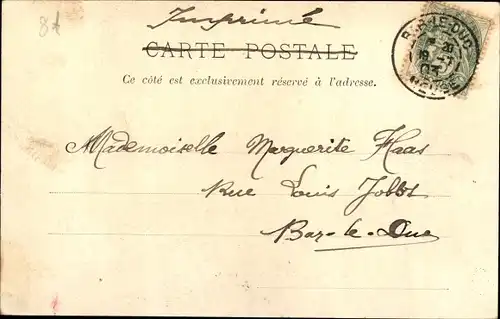 8t
Imprimé
CARTE POSTALE
Ce côté est exclusivement réservé à l'adresse.
BAR-LE-DUC
MEUSE
Mademoiselle Marguerite Haas
Rue Louis Joblot
Bar-le-Duc